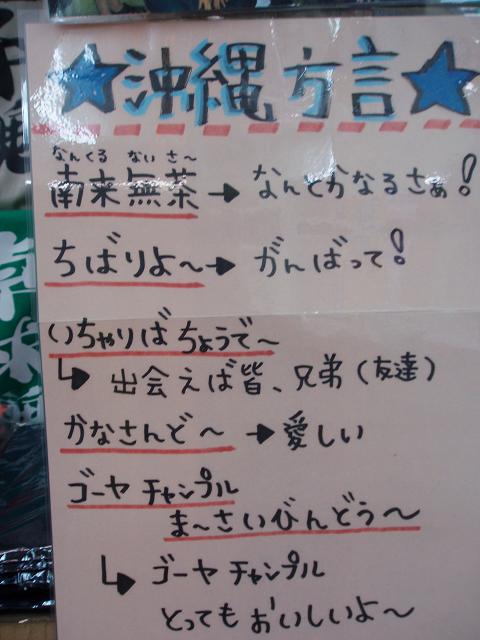 ★沖縄方言★
なんくる ないさ〜
南来無茶 → なんとかなるさぁ!
ちばりよ〜 → がんばって!
いちゃりば ちょうで〜
↳ 出会えば皆、兄弟(友達)
かなさんど〜 → 愛しい
ゴーヤ チャンプル
ま〜さいびんどう〜
↳ ゴーヤ チャンプル
とっても おいしいよ〜